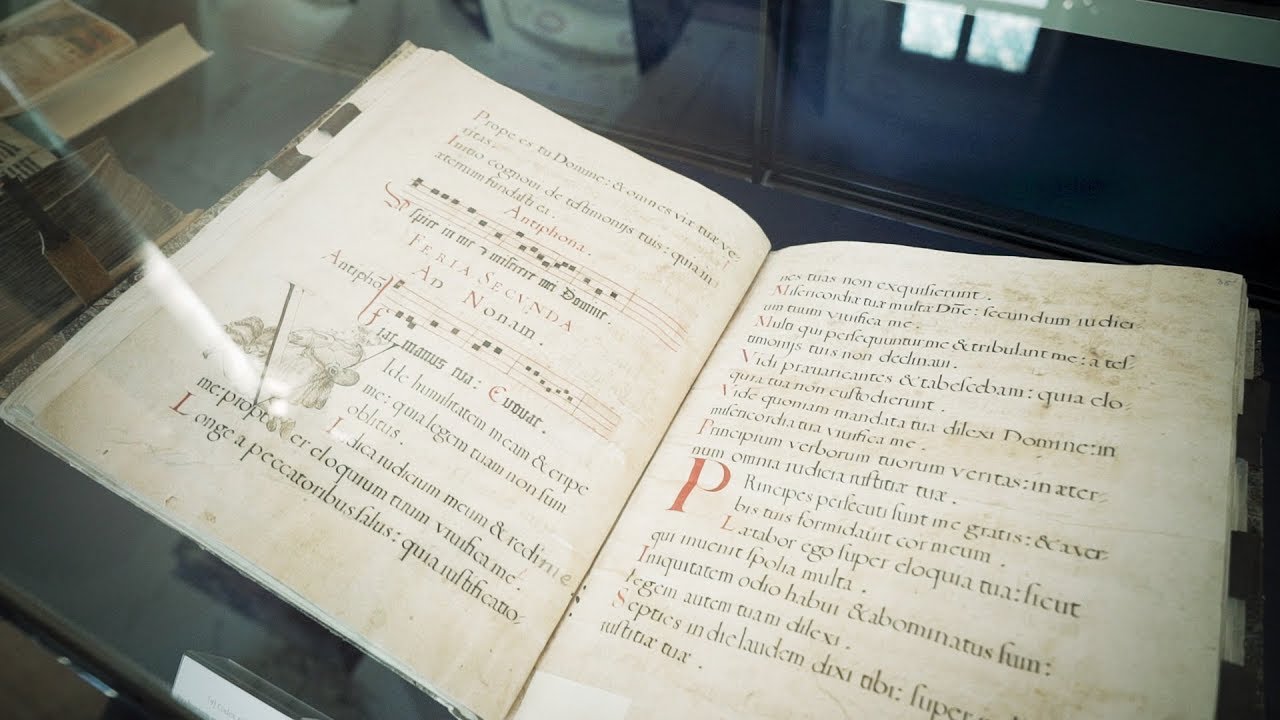 Prope es tu Domine: & omnes viæ tuæ ve-
ritas.
Initio cognoui de testimonijs tuis: quia in
æternum fundasti ea.
Antiphona.
Aspice in me & miserere mei Domine.
FERIA SECVNDA
AD NONAM.
Antipho
Fiat manus tua: Euouae.
Vide humilitatem meam & eripe
me: quia legem tuam non sum
oblitus.
Iudica iudicium meum & redime
me: propter eloquium tuum viuifica me.
Longe a peccatoribus salus: quia iustificatio
nes tuas non exquisierunt.
Misericordiæ tuæ multæ Dñe: secundum iudici
um tuum viuifica me.
Multi qui persequuntur me & tribulant me: a tes
timonijs tuis non declinaui.
Vidi præuaricantes & tabescebam: quia elo
quia tua non custodierunt.
Vide quoniam mandata tua dilexi Domine: in
misericordia tua viuifica me.
Principium verborum tuorum veritas: in æter
num omnia iudicia iustitiæ tuæ.
PRincipes persecuti sunt me gratis: & a ver
bis tuis formidauit cor meum.
Lætabor ego super eloquia tua: sicut
qui inuenit spolia multa.
Iniquitatem odio habui & abominatus sum:
legem autem tuam dilexi.
Septies in die laudem dixi tibi: super
iustitiæ tuæ.